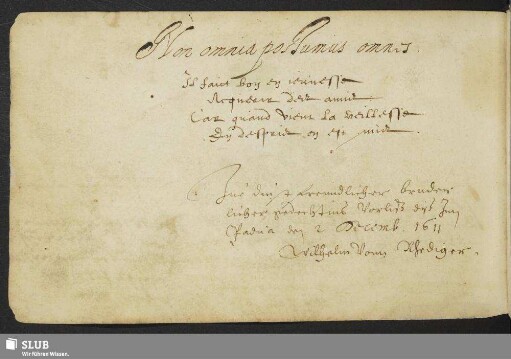 Non omnia possumus omnes.
Il faict bon en jeunesse
Acquerir des amis
Car quand vient la veillesse
En despris on est mis.
Zue dinst freundlicher bruder
licher gedechtnis Verließ dis Inn
Padua den 2 Decemb. 1611
Wilhelm Vonn Rhediger.
SLUB
Wir führen Wissen.